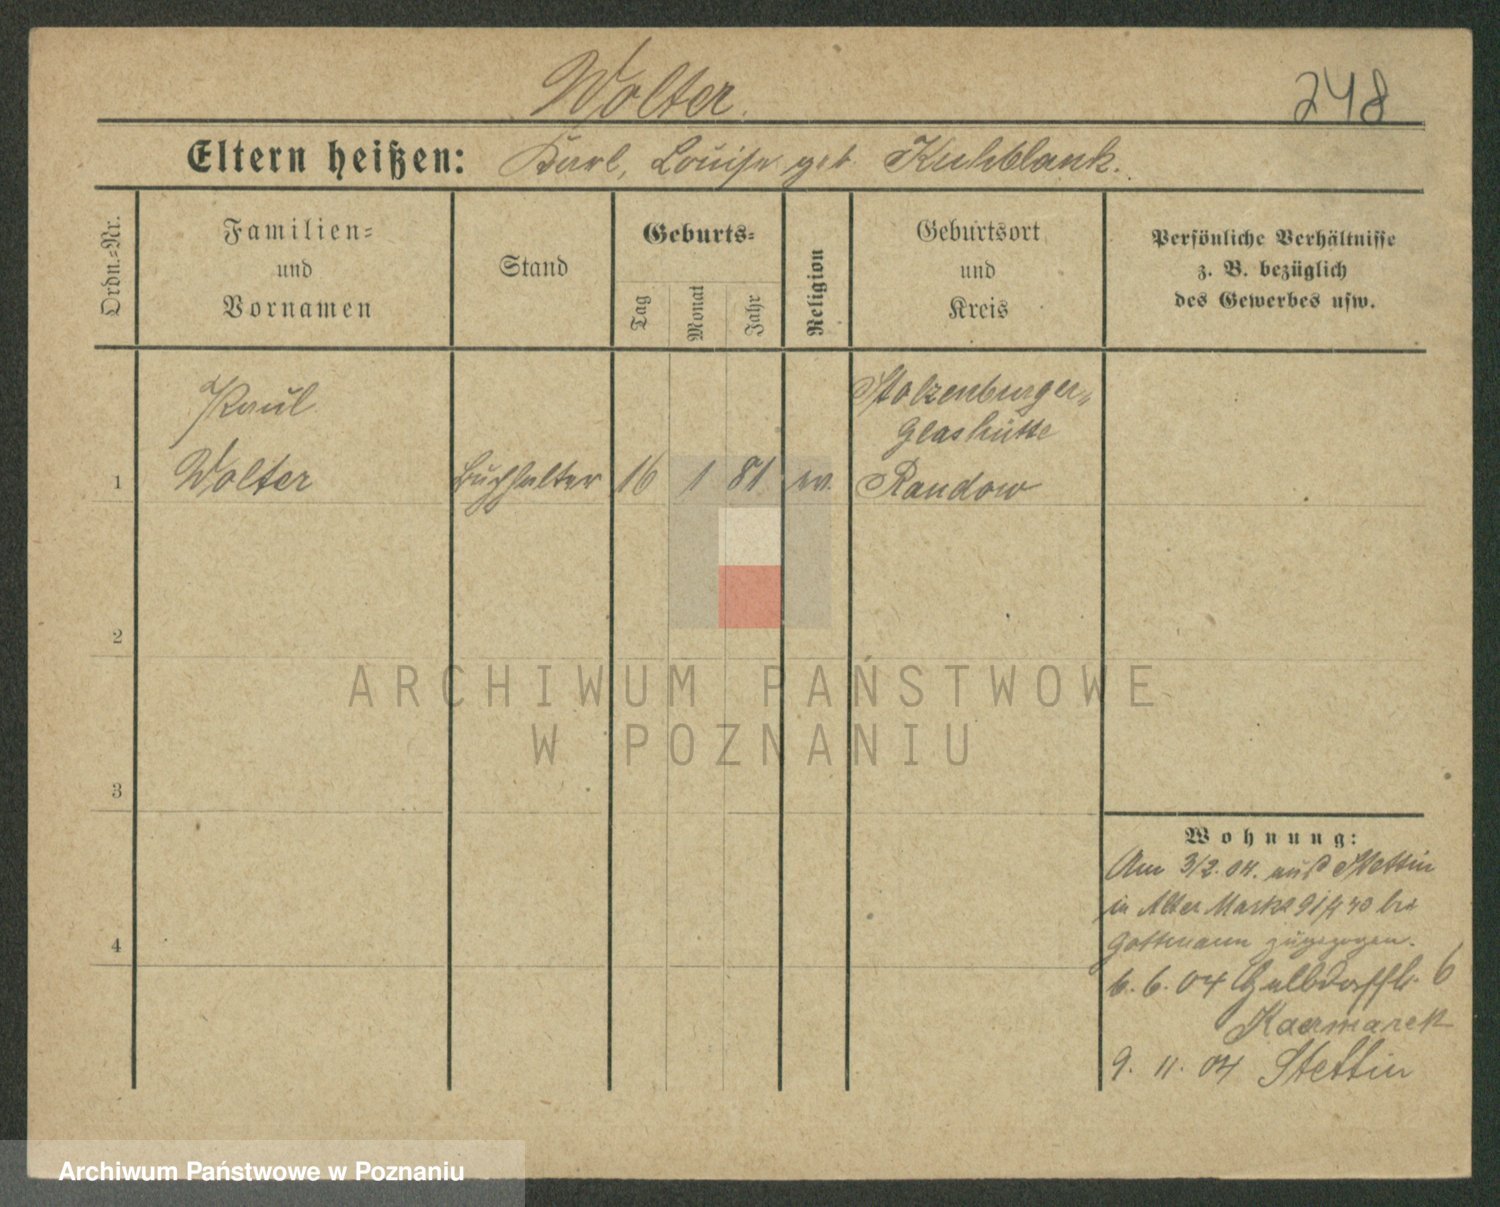 Wolter.
248
Eltern heißen: Karl, Louise geb. Kuhblank.
Ordn.-Nr.
Familien-
und
Vornamen
Stand
Geburts-
Tag
Monat
Jahr
Religion
Geburtsort
und
Kreis
Persönliche Verhältnisse
z. B. bezüglich
des Gewerbes usw.
Paul
Stolzenburger-
Glashütte
1 Wolter Buchhalter 16 1 81 ev. Randow
2
3
4
Wohnung:
Am 3/2. 04. aus Stettin
in Alter Markt 91 bei
Gottmann zugezogen.
6. 6. 04 6
9. 11. 04 Stettin
ARCHIWUM PAŃSTWOWE
W POZNANIU
Archiwum Państwowe w Poznaniu